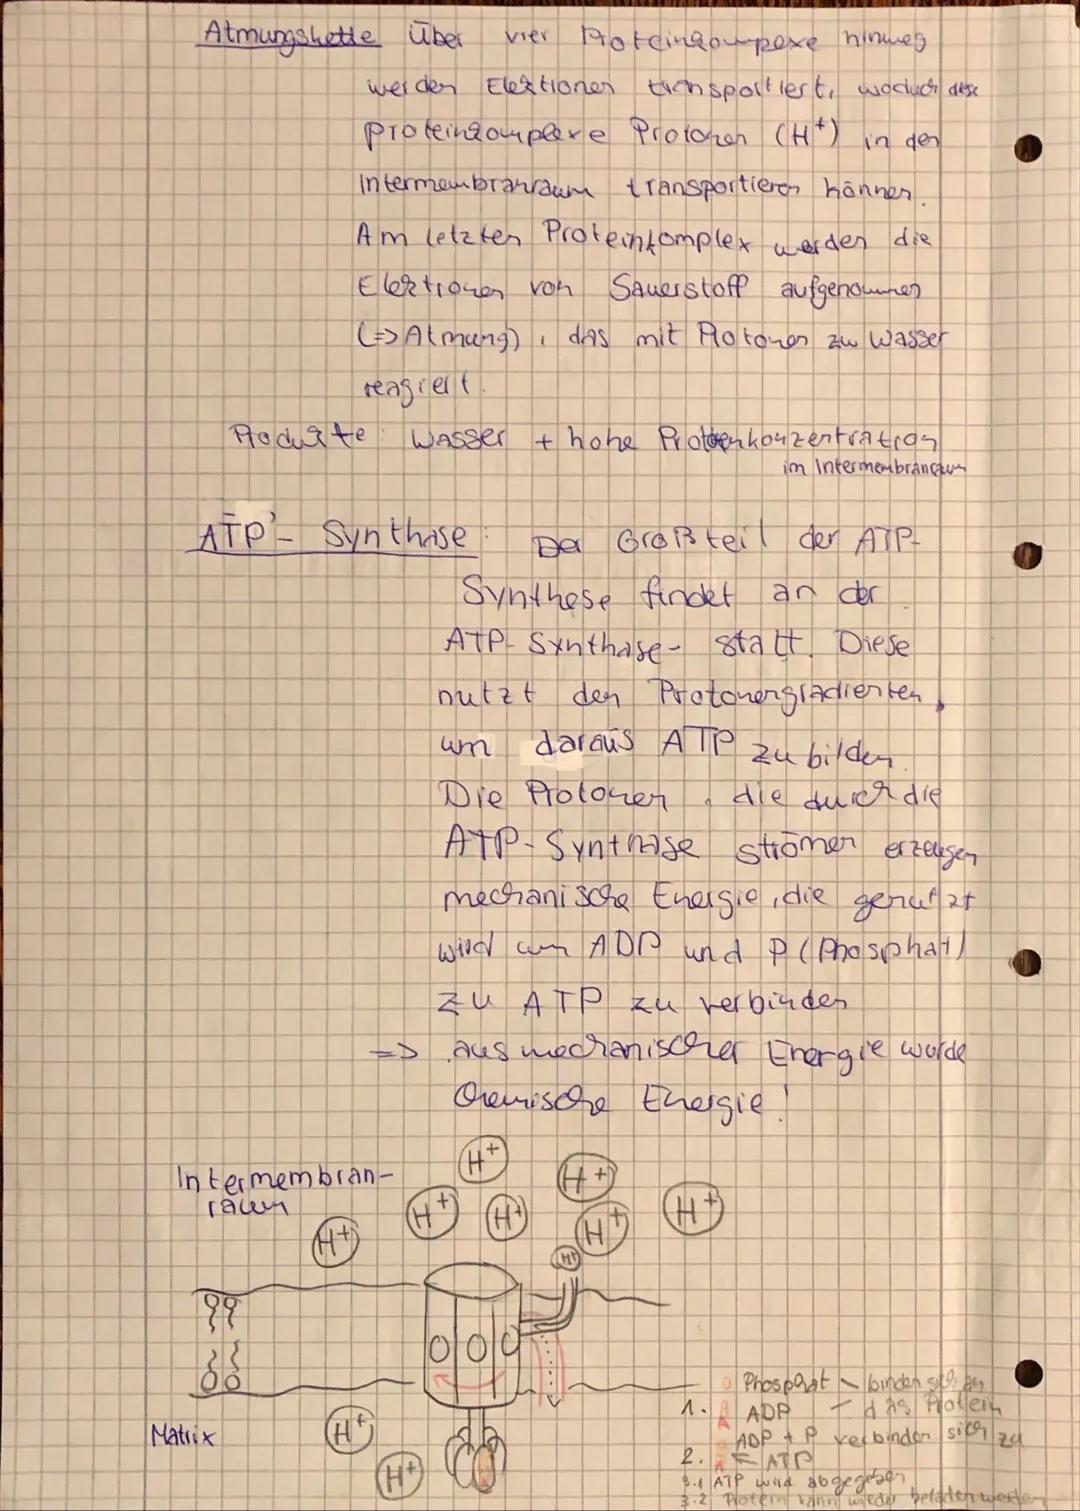 Atmungskette Über vier Proteinkomplexe hinweg
werden Elektronen transportiert, wodurch diese
Proteinkomplexe Protonen (H⁺) in den
Intermembranraum transportieren können.
Am letzten Proteinkomplex werden die
Elektronen von Sauerstoff aufgenommen
(=> Atmung), das mit Protonen zu Wasser
reagiert.
Produkte: Wasser + hohe Protonenkonzentration
im Intermembranraum
ATP-Synthase: Der Großteil der ATP-
Synthese findet an der
ATP-Synthase- statt. Diese
nutzt den Protonengradienten,
um daraus ATP zu bilden.
Die Protonen, die durch die
ATP-Synthase strömen erzeugen
mechanische Energie, die genutzt
wird um ADP und P (Phosphat)
zu ATP zu verbinden
=> aus mechanischer Energie wurde
chemische Energie!
H⁺
Intermembran-
raum
H⁺
H⁺
H⁺
H⁺
H⁺
H⁺
H⁺
Matrix
H⁺
H⁺
Phosphat binden sich an
1. ADP das Protein
ADP + P verbinden sich zu
2. = ATP
3.1 ATP wird abgegeben
3.2 Protein kann wieder beladen werden